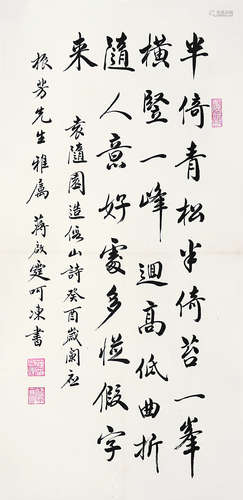 半倚青松半倚苔一峯
橫豎一峰迴高低曲折
隨人意好處多從假字
来
袁隨園造假山詩癸酉歲闌应
振芳先生雅属 蔣啟霆呵凍書